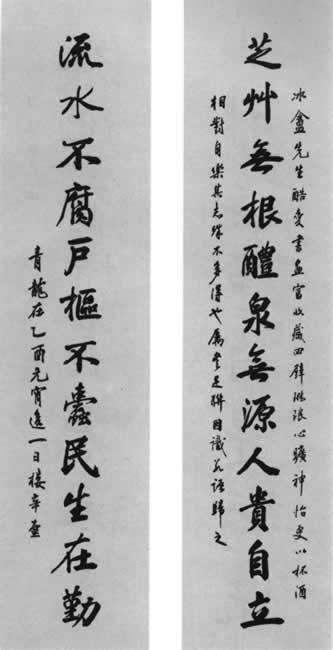 冰盦先生酷愛書畫富收藏四壁琳琅心曠神怡更以杯酒
芝艸無根醴泉無源人貴自立
相對自樂其志殊不多得也屬書是聯因識語歸之
流水不腐戶樞不蠹民生在勤
青龍在乙酉元宵後一日樓辛壺